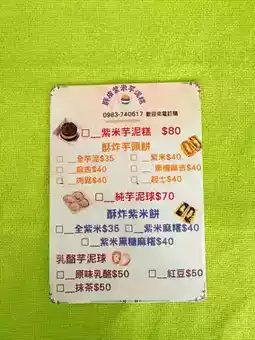 0983-740617 歡迎來電訂購
□__紫米芋泥糕 $80
酥炸芋頭餅
□__全芋泥$35 □__紫米$40
□__麻吉$40 □__黑糖麻吉$40
□__肉鬆$40 □__起士$40
□__純芋泥球$70
酥炸紫米餅
□__全紫米$35 □__紫米麻糬$40
□__紫米黑糖麻糬$40
乳酪芋泥球
□__原味乳酪$50 □__紅豆$50
□__抹茶$50